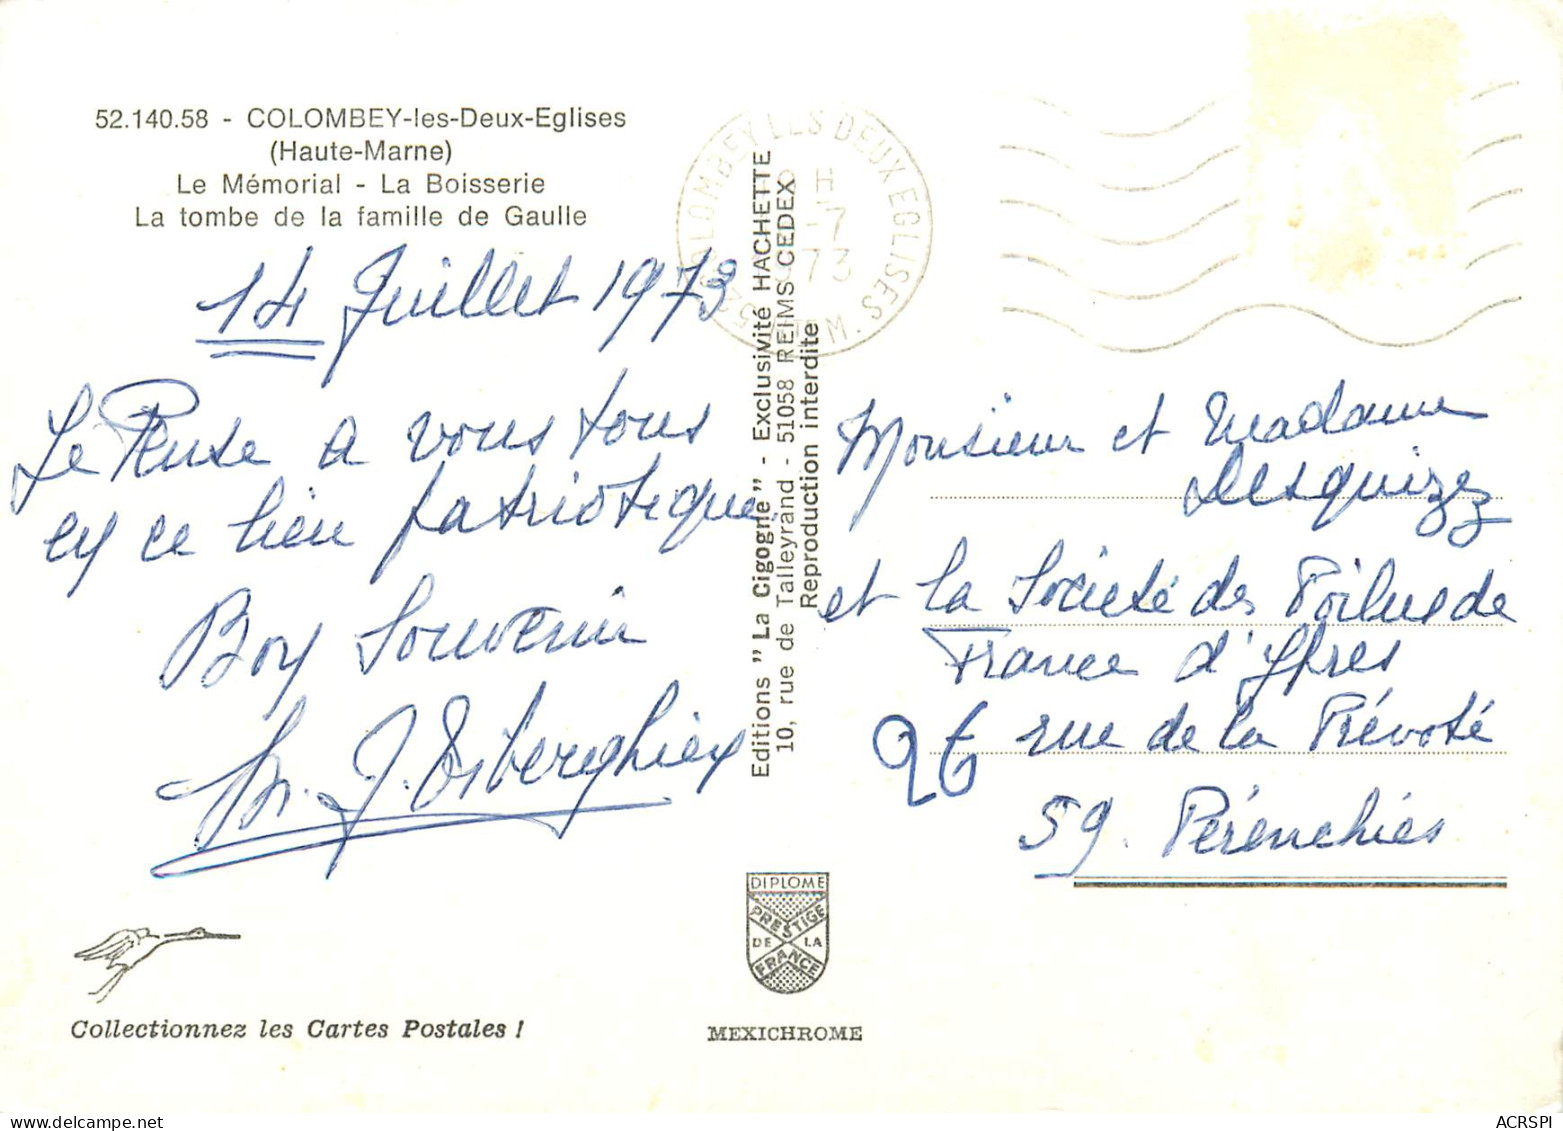 52.140.58 - COLOMBEY-les-Deux-Eglises
(Haute-Marne)
Le Mémorial - La Boisserie
La tombe de la famille de Gaulle
14 Juillet 1973
Je Pense a vous tous
en ce lieu patriotique
Bon Souvenir
M. J. Tiberghien
COLOMBEY LES DEUX EGLISES
H
-7
1973
52 Hte M.
Editions " La Cigogne " - Exclusivité HACHETTE
10, rue de Talleyrand - 51058 REIMS CEDEX
Reproduction interdite
Monsieur et Madame
Desquiez
et la Société des Poilus de
France d'Ypres
26 rue de la Prévoté
59. Pérenchies
DIPLOME
PRESTIGE
DE LA
FRANCE
Collectionnez les Cartes Postales !
MEXICHROME
ACRSPI